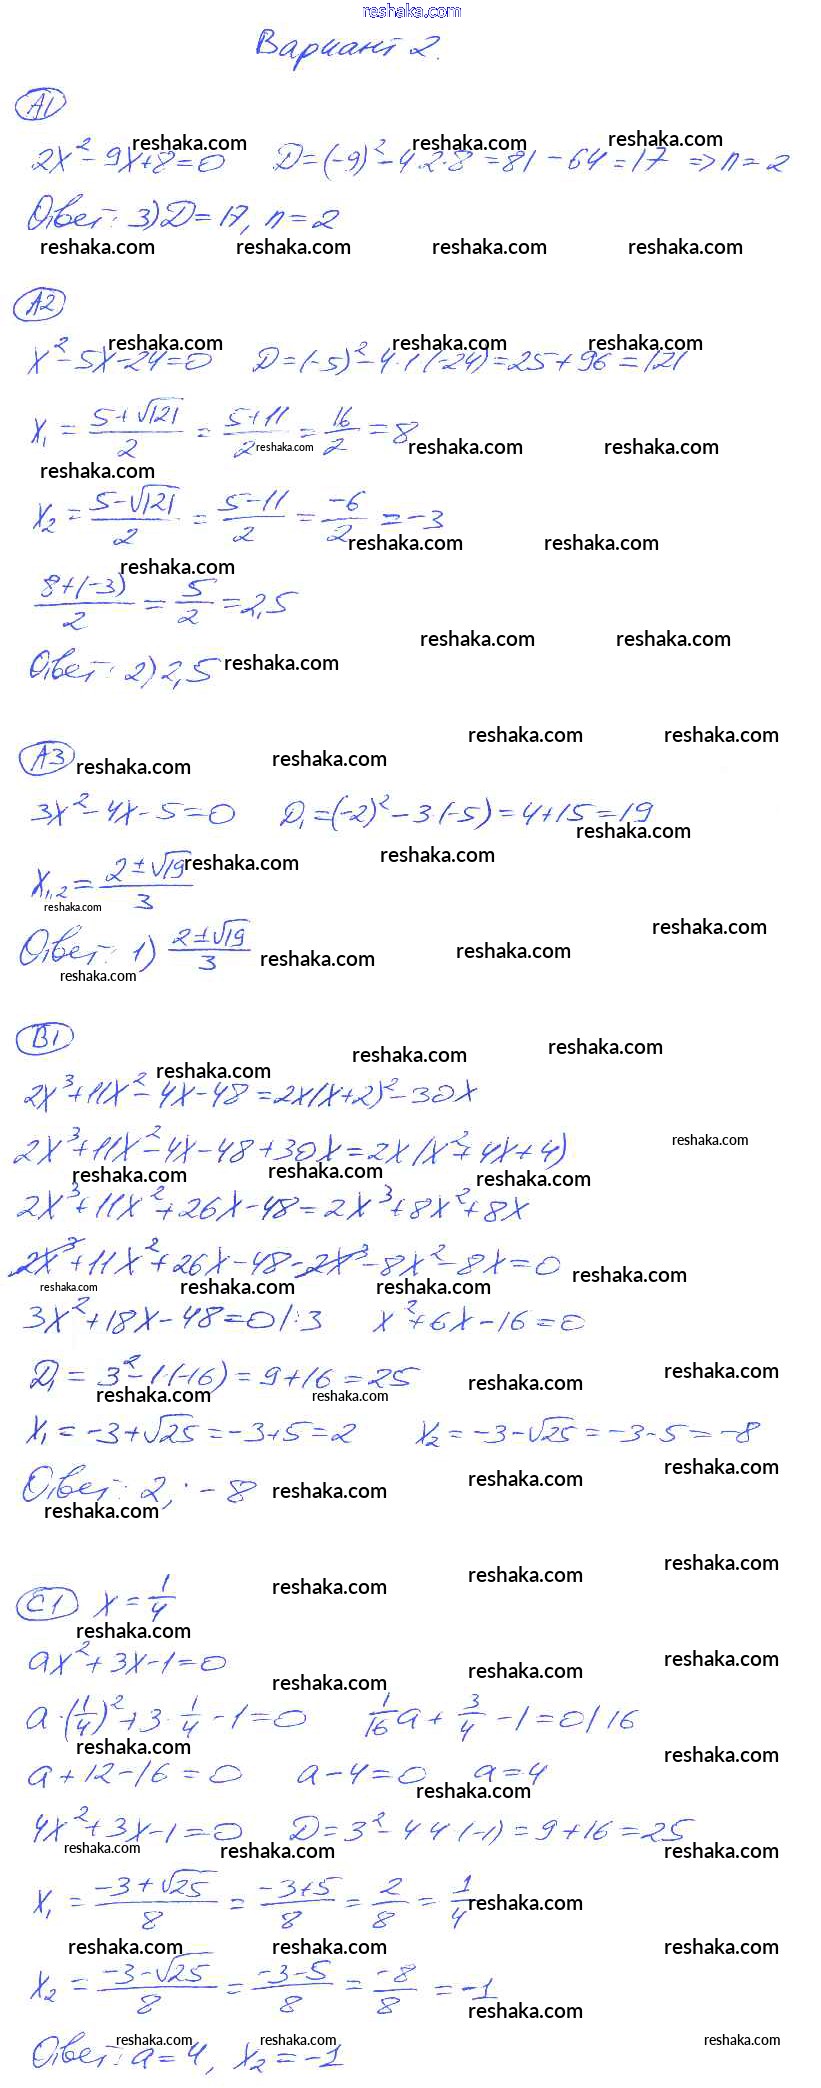 reshaka.com
Вариант 2.
A1
2x² - 9x + 8 = 0 D = (-9)² - 4·2·8 = 81 - 64 = 17 => n = 2
Ответ: 3) D = 17, n = 2
A2
x² - 5x - 24 = 0 D = (-5)² - 4·1·(-24) = 25 + 96 = 121
x₁ = (5+√121)/2 = (5+11)/2 = 16/2 = 8
x₂ = (5-√121)/2 = (5-11)/2 = -6/2 = -3
(8+(-3))/2 = 5/2 = 2,5
Ответ: 2) 2,5
A3
3x² - 4x - 5 = 0 D₁ = (-2)² - 3·(-5) = 4 + 15 = 19
x₁,₂ = (2±√19)/3
Ответ: 1) (2±√19)/3
B1
2x³ + 11x² - 4x - 48 = 2x(x+2)² - 30x
2x³ + 11x² - 4x - 48 + 30x = 2x(x² + 4x + 4)
2x³ + 11x² + 26x - 48 = 2x³ + 8x² + 8x
2x³ + 11x² + 26x - 48 - 2x³ - 8x² - 8x = 0
3x² + 18x - 48 = 0 |:3 x² + 6x - 16 = 0
D₁ = 3² - 1·(-16) = 9 + 16 = 25
x₁ = -3 + √25 = -3 + 5 = 2 x₂ = -3 - √25 = -3 - 5 = -8
Ответ: 2; -8
C1 x = 1/4
ax² + 3x - 1 = 0
a·(1/4)² + 3·1/4 - 1 = 0 1/16 a + 3/4 - 1 = 0 |·16
a + 12 - 16 = 0 a - 4 = 0 a = 4
4x² + 3x - 1 = 0 D = 3² - 4·4·(-1) = 9 + 16 = 25
x₁ = (-3+√25)/8 = (-3+5)/8 = 2/8 = 1/4
x₂ = (-3-√25)/8 = (-3-5)/8 = -8/8 = -1
Ответ: a = 4, x₂ = -1